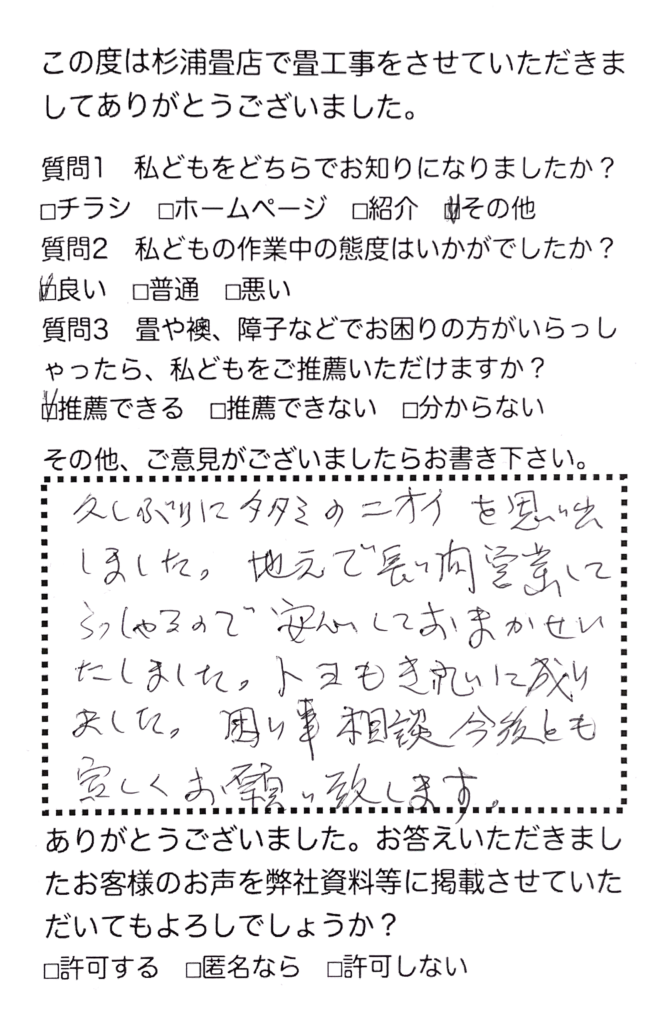 この度は杉浦畳店で畳工事をさせていただきま
してありがとうございました。
質問1 私どもをどちらでお知りになりましたか？
□チラシ □ホームページ □紹介 ☑その他
質問2 私どもの作業中の態度はいかがでしたか？
☑良い □普通 □悪い
質問3 畳や襖、障子などでお困りの方がいらっし
ゃったら、私どもをご推薦いただけますか？
☑推薦できる □推薦できない □分からない
その他、ご意見がございましたらお書き下さい。
久しぶりにタタミのニオイを思い出
しました。地元で長い間営業して
らっしゃるので安心しておまかせい
たしました。トコもき れいに成り
ました。困り事相談今後とも
宜しくお願い致します。
ありがとうございました。お答えいただきまし
たお客様のお声を弊社資料等に掲載させていた
だいてもよろしでしょうか？
□許可する □匿名なら □許可しない